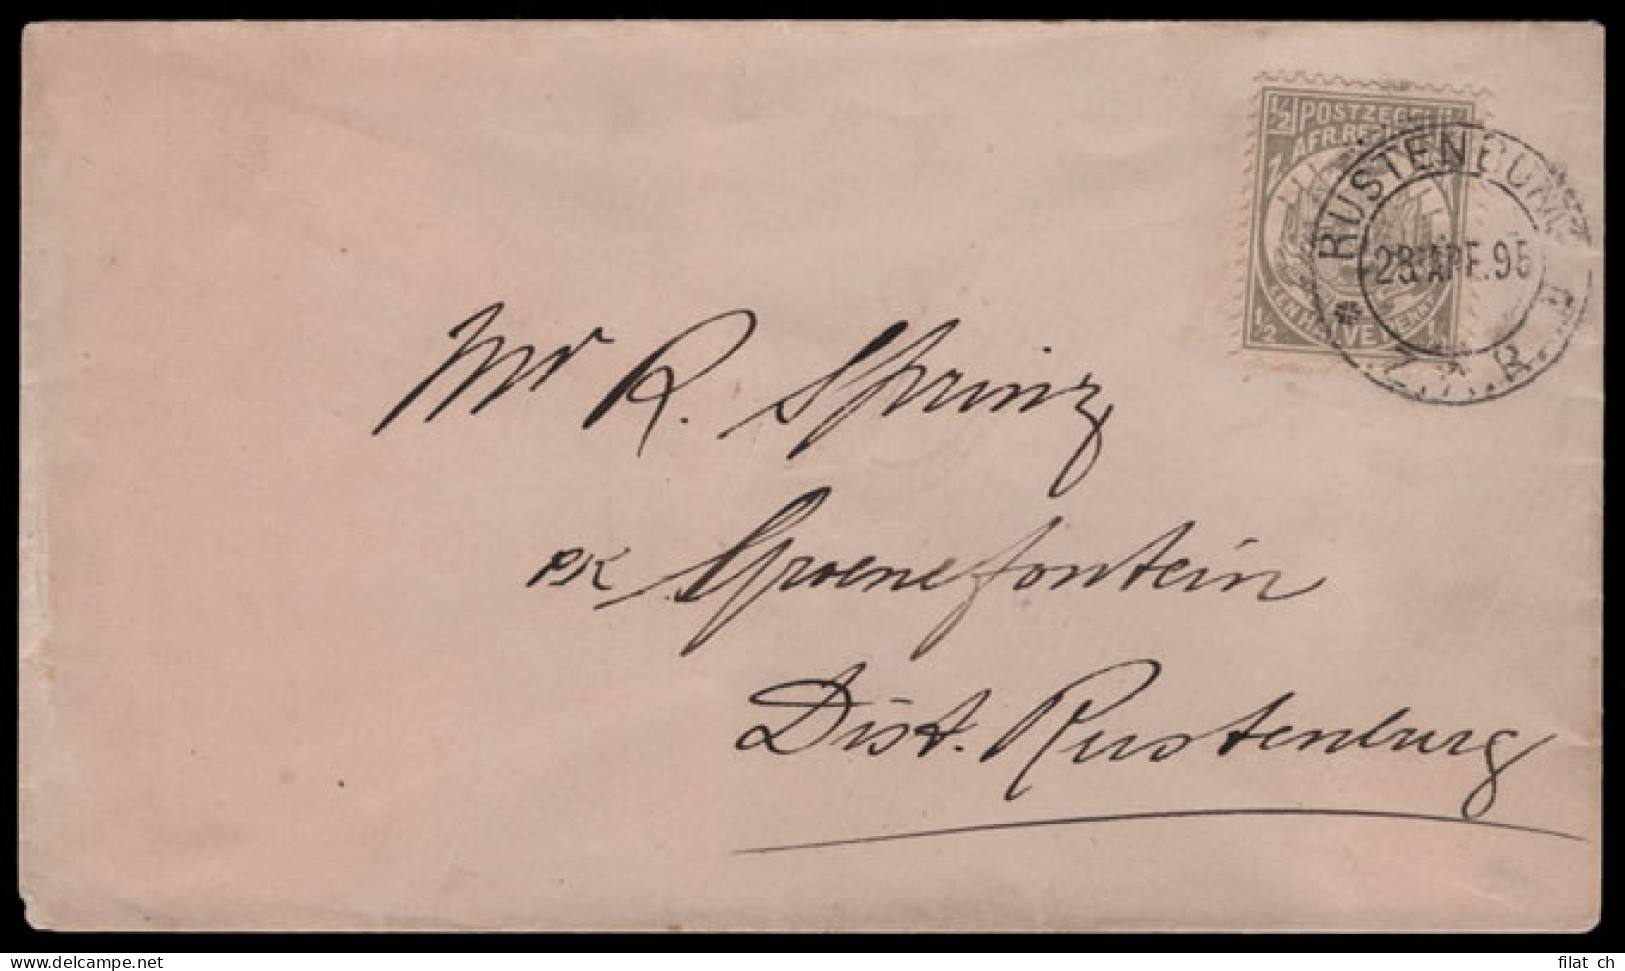 ½ POSTZEGEL
AFR. REP
EEN HALVE PENNY
½
RUSTENBURG
23 APR. 95
Z.A.R.
Mr R. Sprinz
PK Groenefontein
Dist. Rustenburg
www.delcampe.net
filat_ch